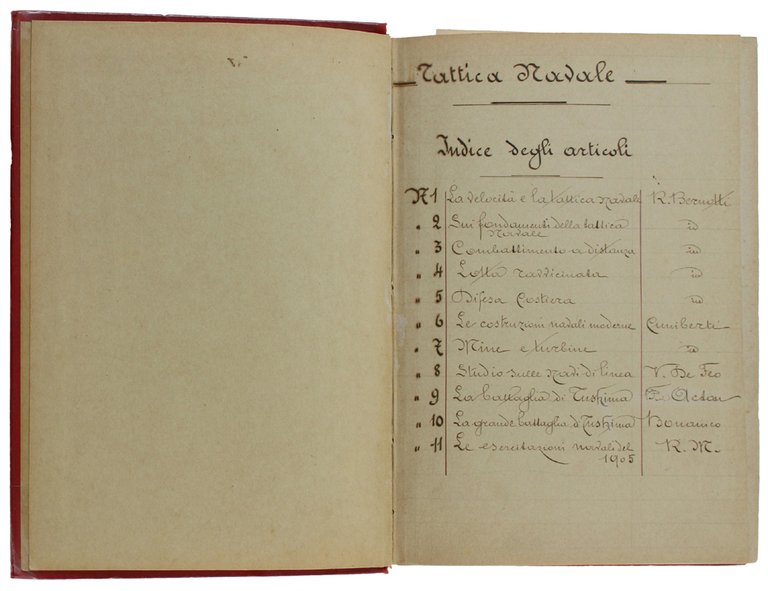 Tattica Navale
Indice degli articoli
N 1 La velocità e la tattica navale R. Bernotti
" 2 Sui fondamenti della tattica navale id
" 3 Combattimento a distanza id
" 4 Lotta ravvicinata id
" 5 Difesa Costiera id
" 6 Le costruzioni navali moderne Cuniberti
" 7 Mine e turbine id
" 8 Studio sulle Navi di linea V. De Feo
" 9 La battaglia di Tushima Acton
" 10 La grande battaglia d Tushima Bonamico
" 11 Le esercitazioni navali del 1905 R. M.